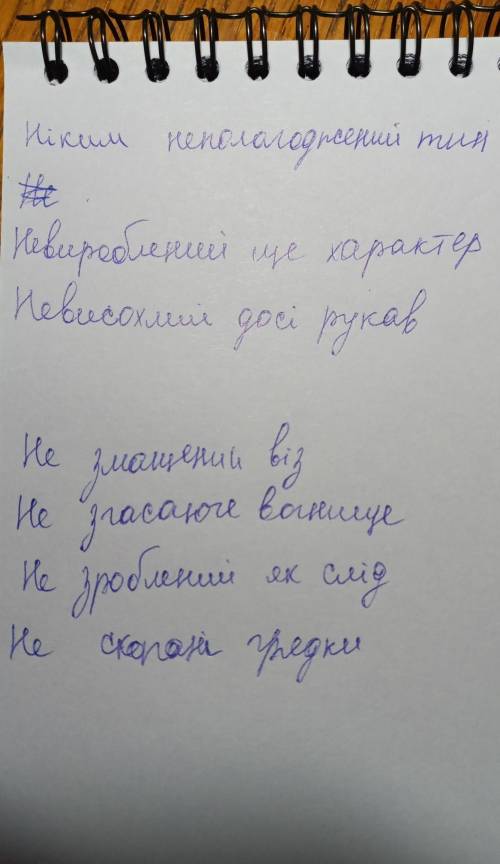 Ніким неполагоджений тин
Не
Невироблений ще характер
Невисохлий досі рукав
Не змащений віз
Не згасаюче вогнище
Не зроблений як слід
Не скопані грядки